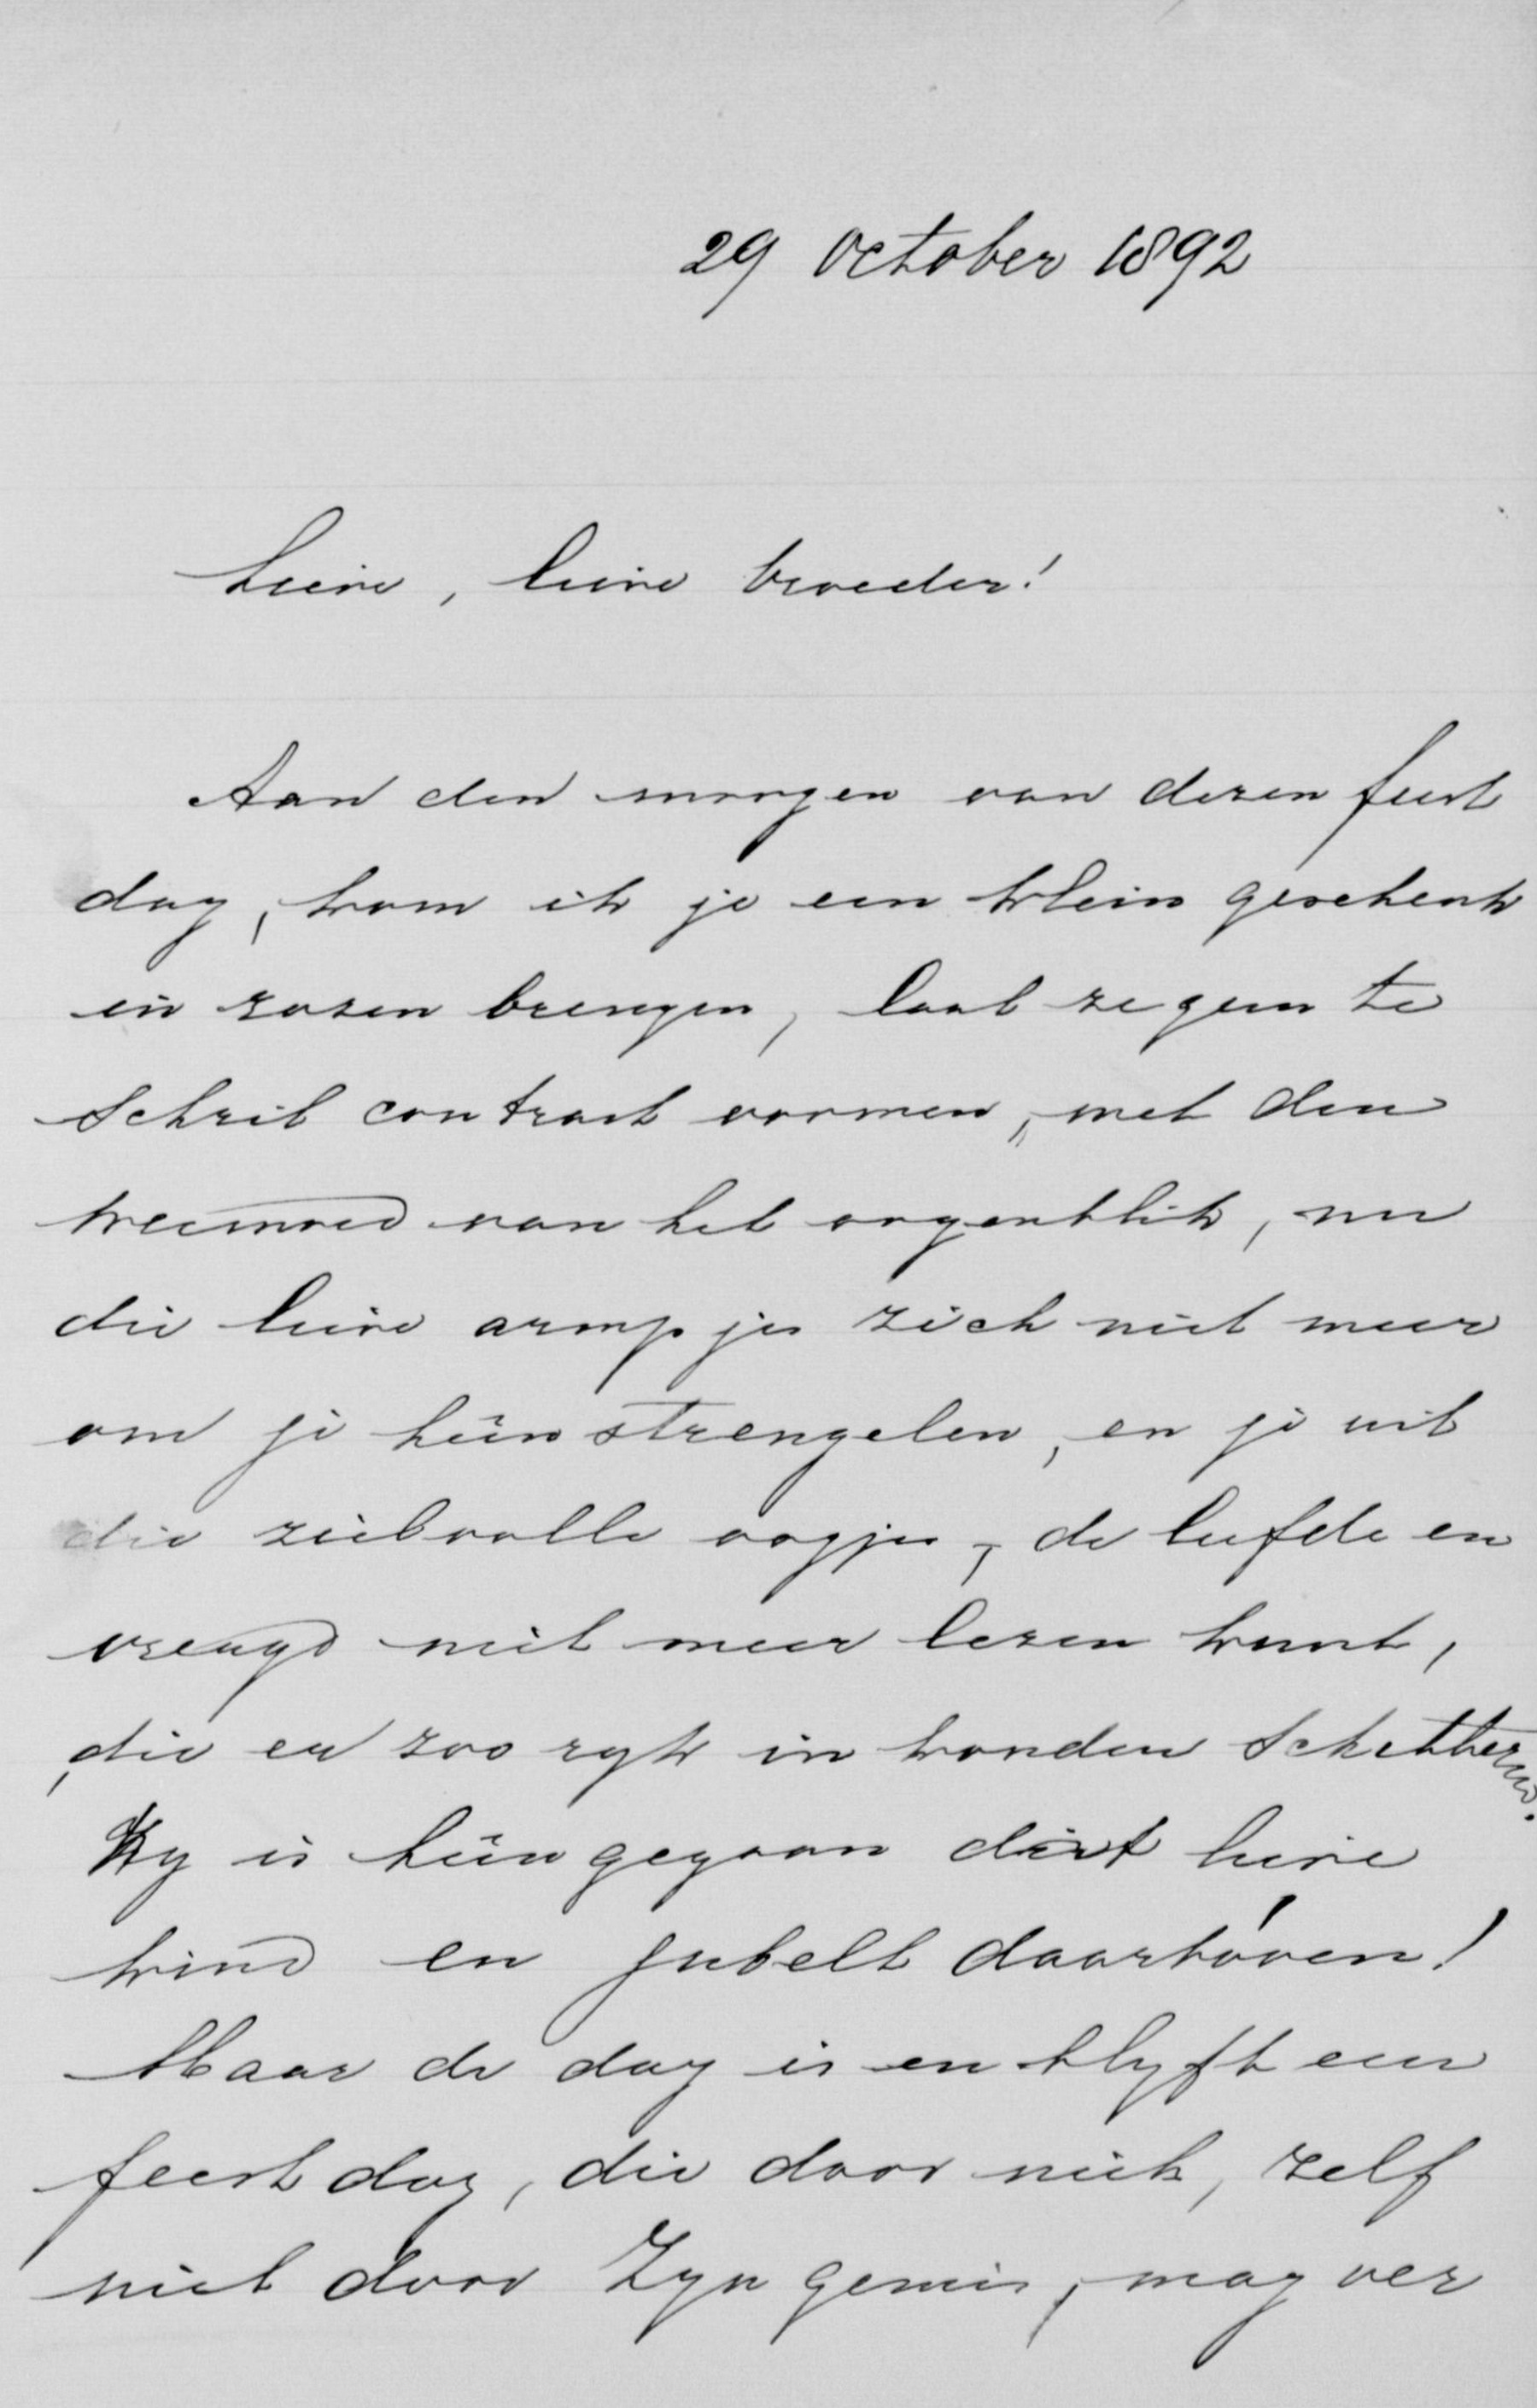 29 October 1892
Lieve, lieve broeder!
Aan den morgen van dezen feest
dag, kom ik je een klein geschenk
in rozen brengen, laat ze geen te
schril contrast vormen, met den
weemoed van het oogenblik, nu
die lieve armpjes zich niet meer
om je heen strengelen, en je uit
die zielvolle oogjes, de liefde en
vreugd niet meer lezen kunt,
die er zoo ryk in konden schitteren.
Hy is heengegaan dat lieve
kind en jubelt daarbóven!
Maar de dag is en blyft een
feestdag, die door niets, zelf
niet door Zyn gemis, mag ver